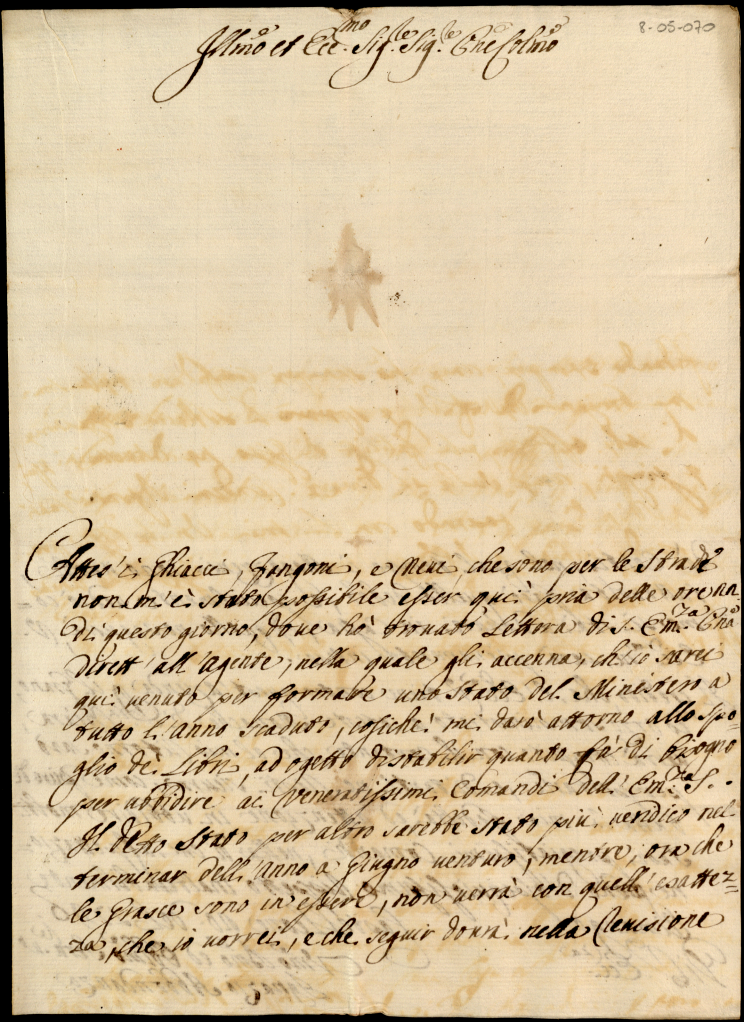 8-05-070
Illmo et Ecc.mo Sig.re Sig.re Pne Colmo
Attes' i Ghiacci, Fangoni, e Nevi, che sono per le Strade
non m'è stato possibile esser quì pria delle ore
di questo giorno, dove hò trovato Lettera di S. Em.za Pne
dirett' all'Agente, nella quale gli accenna, ch'io sarei
quì venuto per formare uno Stato del Ministero a
tutto l'anno scaduto, cosichè mi darò attorno allo spo=
glio de' Libri, ad ogetto di stabilir quanto fà di bisogno
per ubbidire ai Veneratissimi Comandi dell' Em.za S.
Il detto Stato per altro sarebbe stato più veridico nel
terminar dell'anno a Giugno venturo; mentre, ora che
le Grasce sono in essere, non verrà con quell' esattez=
za, che io vorrei, e che seguir dovrà nella Revisione